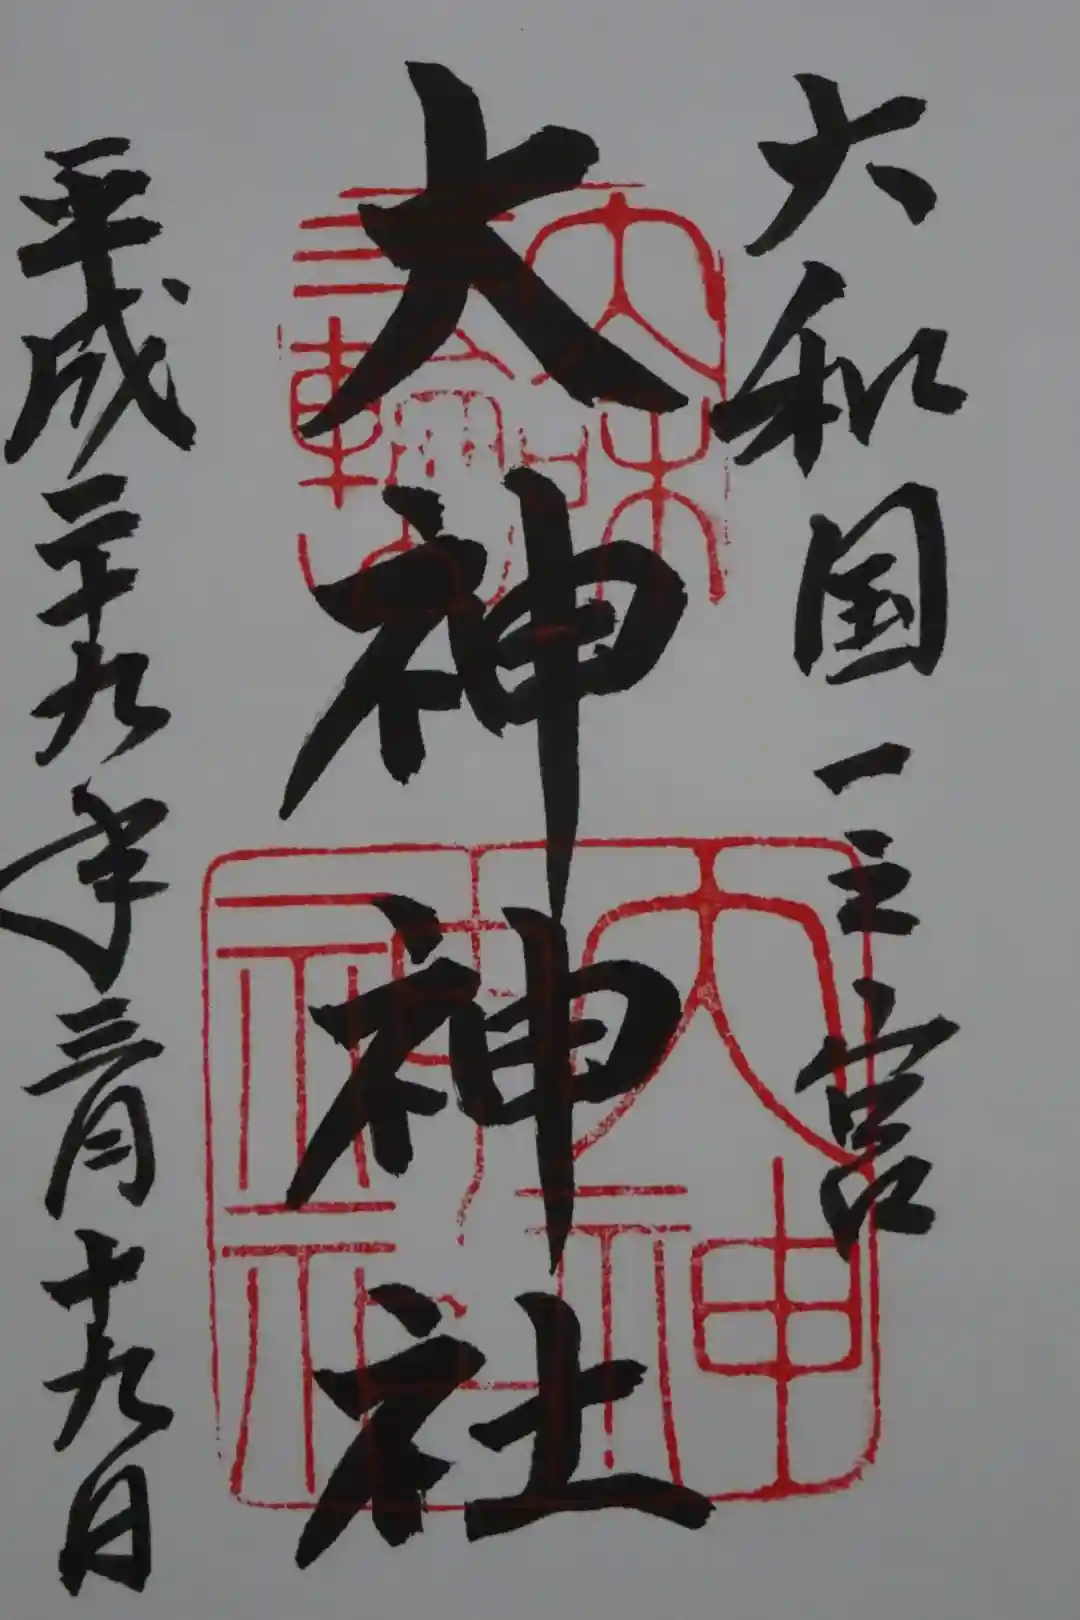 大和国一之宮
大神神社
平成二十九年三月十九日
大神神社